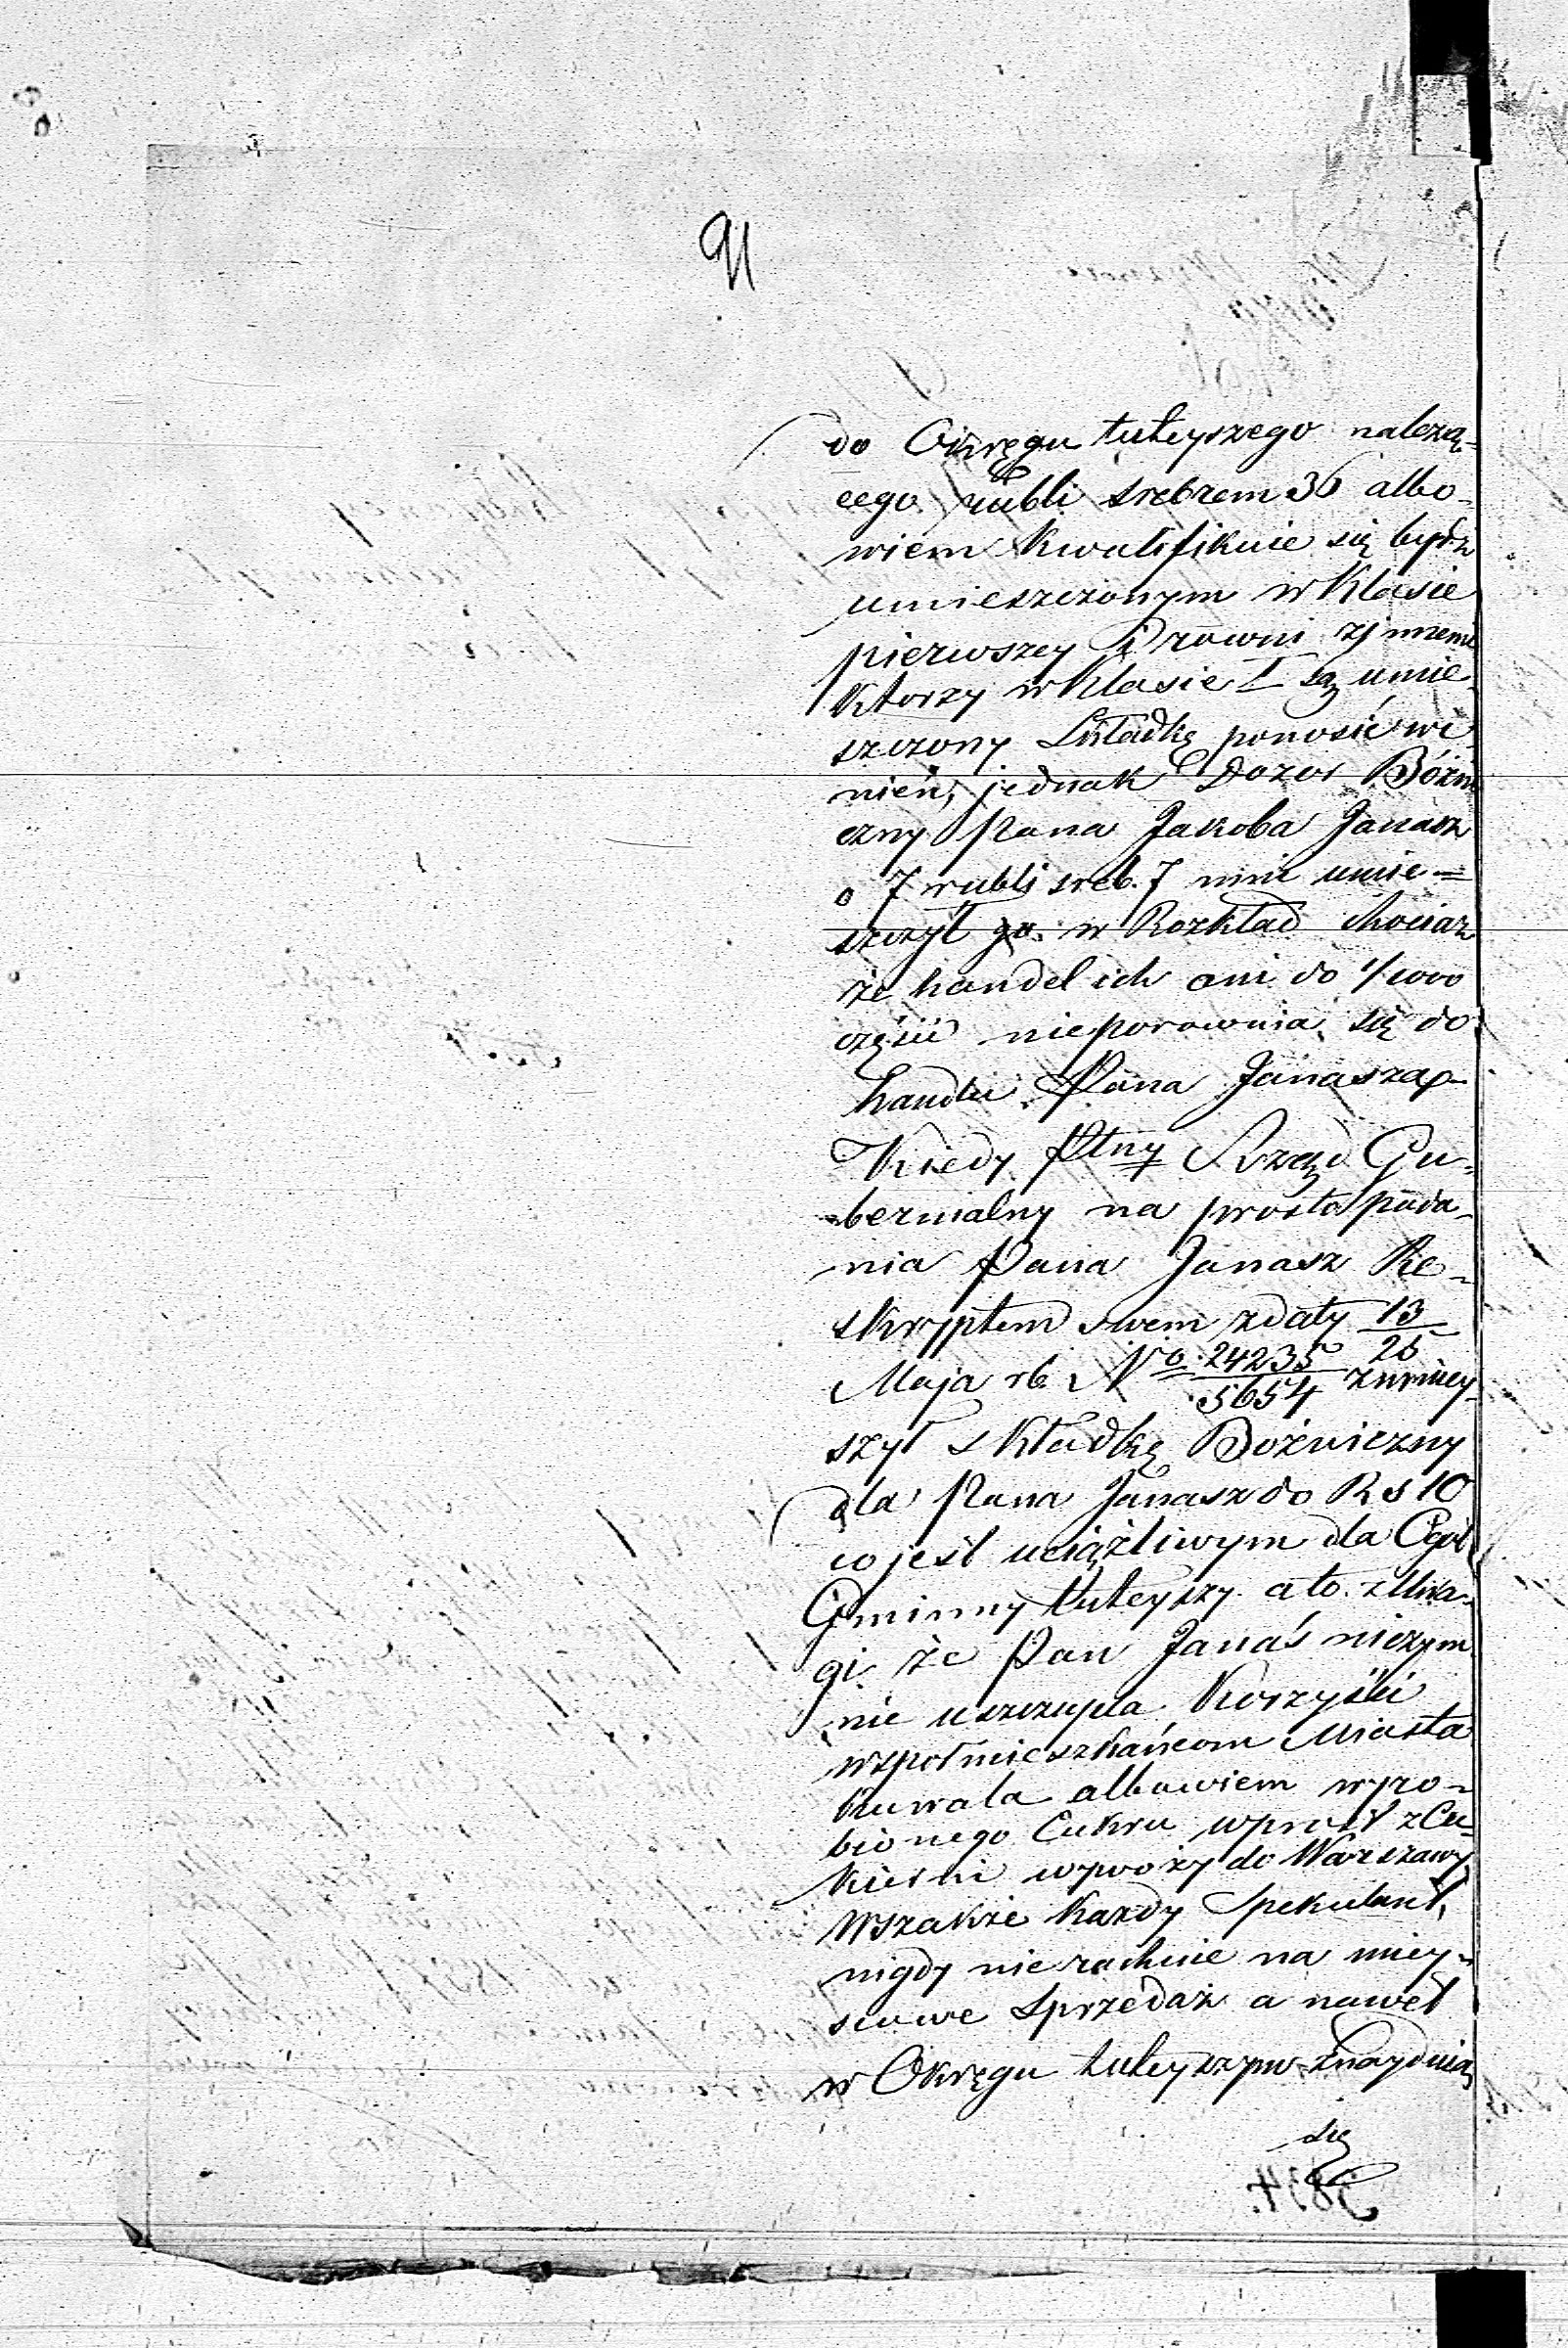 91
do Okręgu tuteyszego należą=
cego rubli srebrem 36 albo-
wiem kwalifikuie się bydź
umieszczonym w Klasie
pierwszey i rowni z jnnemi
ktorzy w Klasie I są umie-
szczony Składkę ponosić wi-
nień, jednak Dozor Bóżni
czny Pana Jakoba Janasz
o 7 rubli sreb. 7 umie=
szczył go. w Rozkład chociaż
że handel ich ani do 1/1000
części nieporownia się do
handlu Pana Janasza.-
Kiedy Rząd Gu-
bernialny na prosto poda-
nia Pana Janasz Re-
skryptem swem z daty 13/25
Maja rb. No 24235/5654 zmniey-
szył składkę Bożniczny
dla Pana Janasz do Rs 10
co jest uciążliwym dla Ogół
Gminny tuteyszy a to z Uwa-
gi że Pan Janaś niczym
nie uszczupla Korzyści
wspołmieszkańcom Miasta
albowiem wyro-
bionego Cukru wprost z Cu-
kierni wywozy do Warszawy
Wszakże każdy Spekulant,
nigdy nie rachuie na miey-
scowe Sprzedaż a nawet
w Okręgu tuteyszym znayduią
się